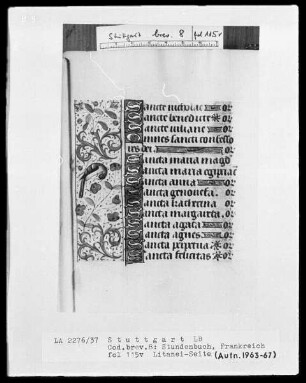 Stuttgart brev. 8 fol 115v
ancte nicholae or
ancte benedicte or
ancte iuliane or
mnes sancti confesso
res dei. or
ancta maria magd
ancta maria egiptiac
ancta anna or
ancta genoucfa. or
ancta katherina or
ancta margareta. or
ancta agatha or
ancta agnes or
ancta perpetua or
ancta felicitas or
LA 2276/37 Stuttgart LB
Cod.brev.8: Stundenbuch, Frankreich
fol 115v Litanei-Seite (Aufn.1963-67)